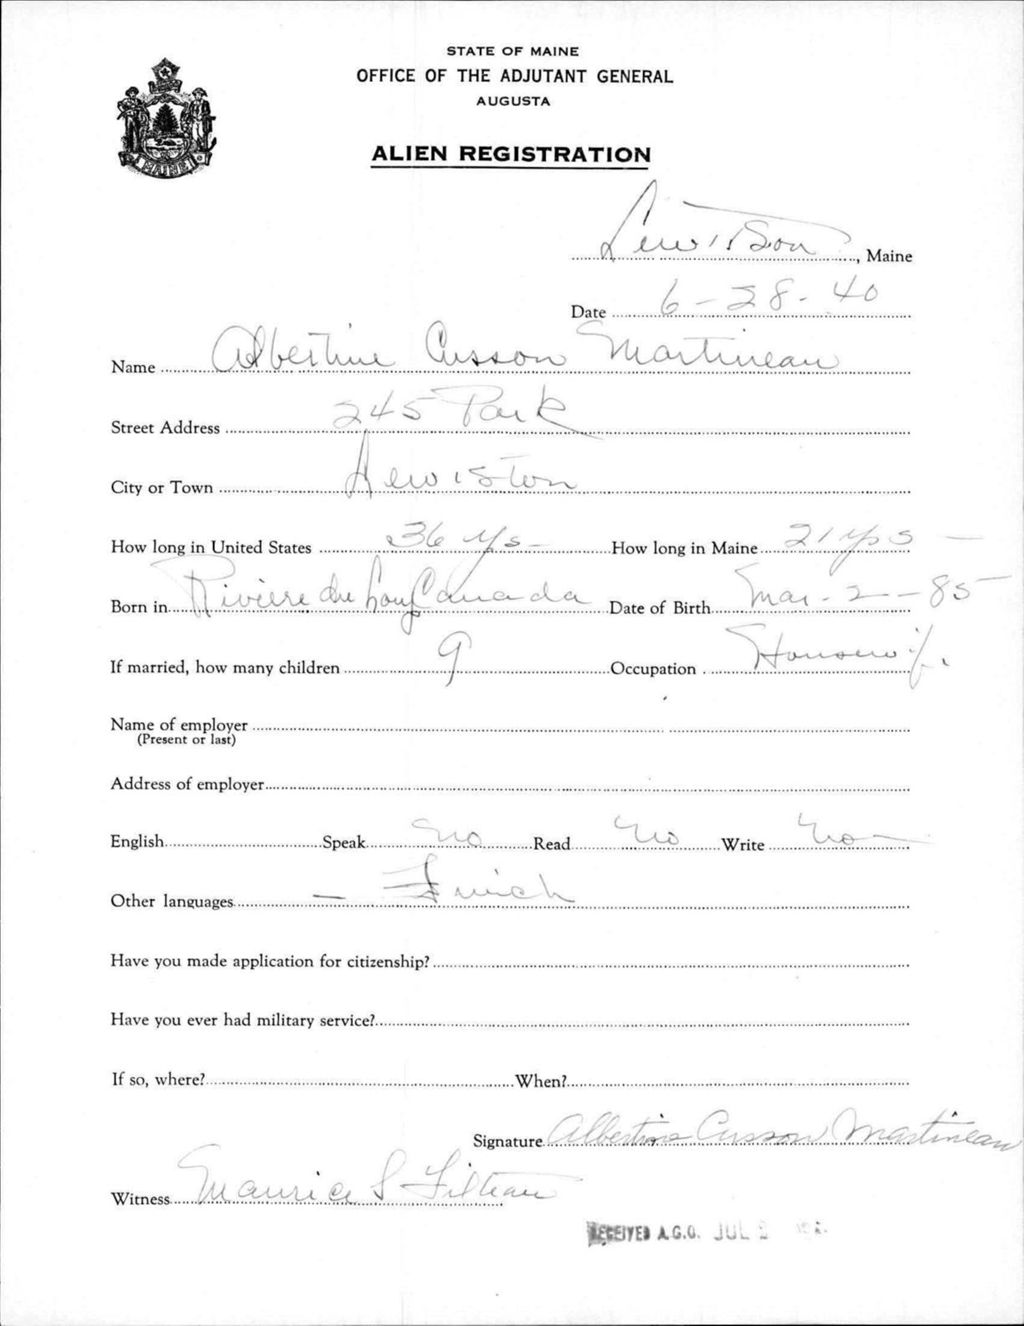 STATE OF MAINE
OFFICE OF THE ADJUTANT GENERAL
AUGUSTA
ALIEN REGISTRATION
MAINE
Lewiston, Maine
Date 6-28-40
Name Albertine Cusson Martineau
Street Address 245 Park
City or Town Lewiston
How long in United States 36 yrs How long in Maine 21 yrs
Born in Riviere du Loup Canada Date of Birth Mar-2-85
If married, how many children 9 Occupation Housewife
Name of employer
(Present or last)
Address of employer
English Speak No Read No Write No
Other languages French
Have you made application for citizenship?
Have you ever had military service?
If so, where? When?
Signature Albertine Cusson Martineau
Witness Maurice S Filteau
RECEIVED A.G.O. JUL 2